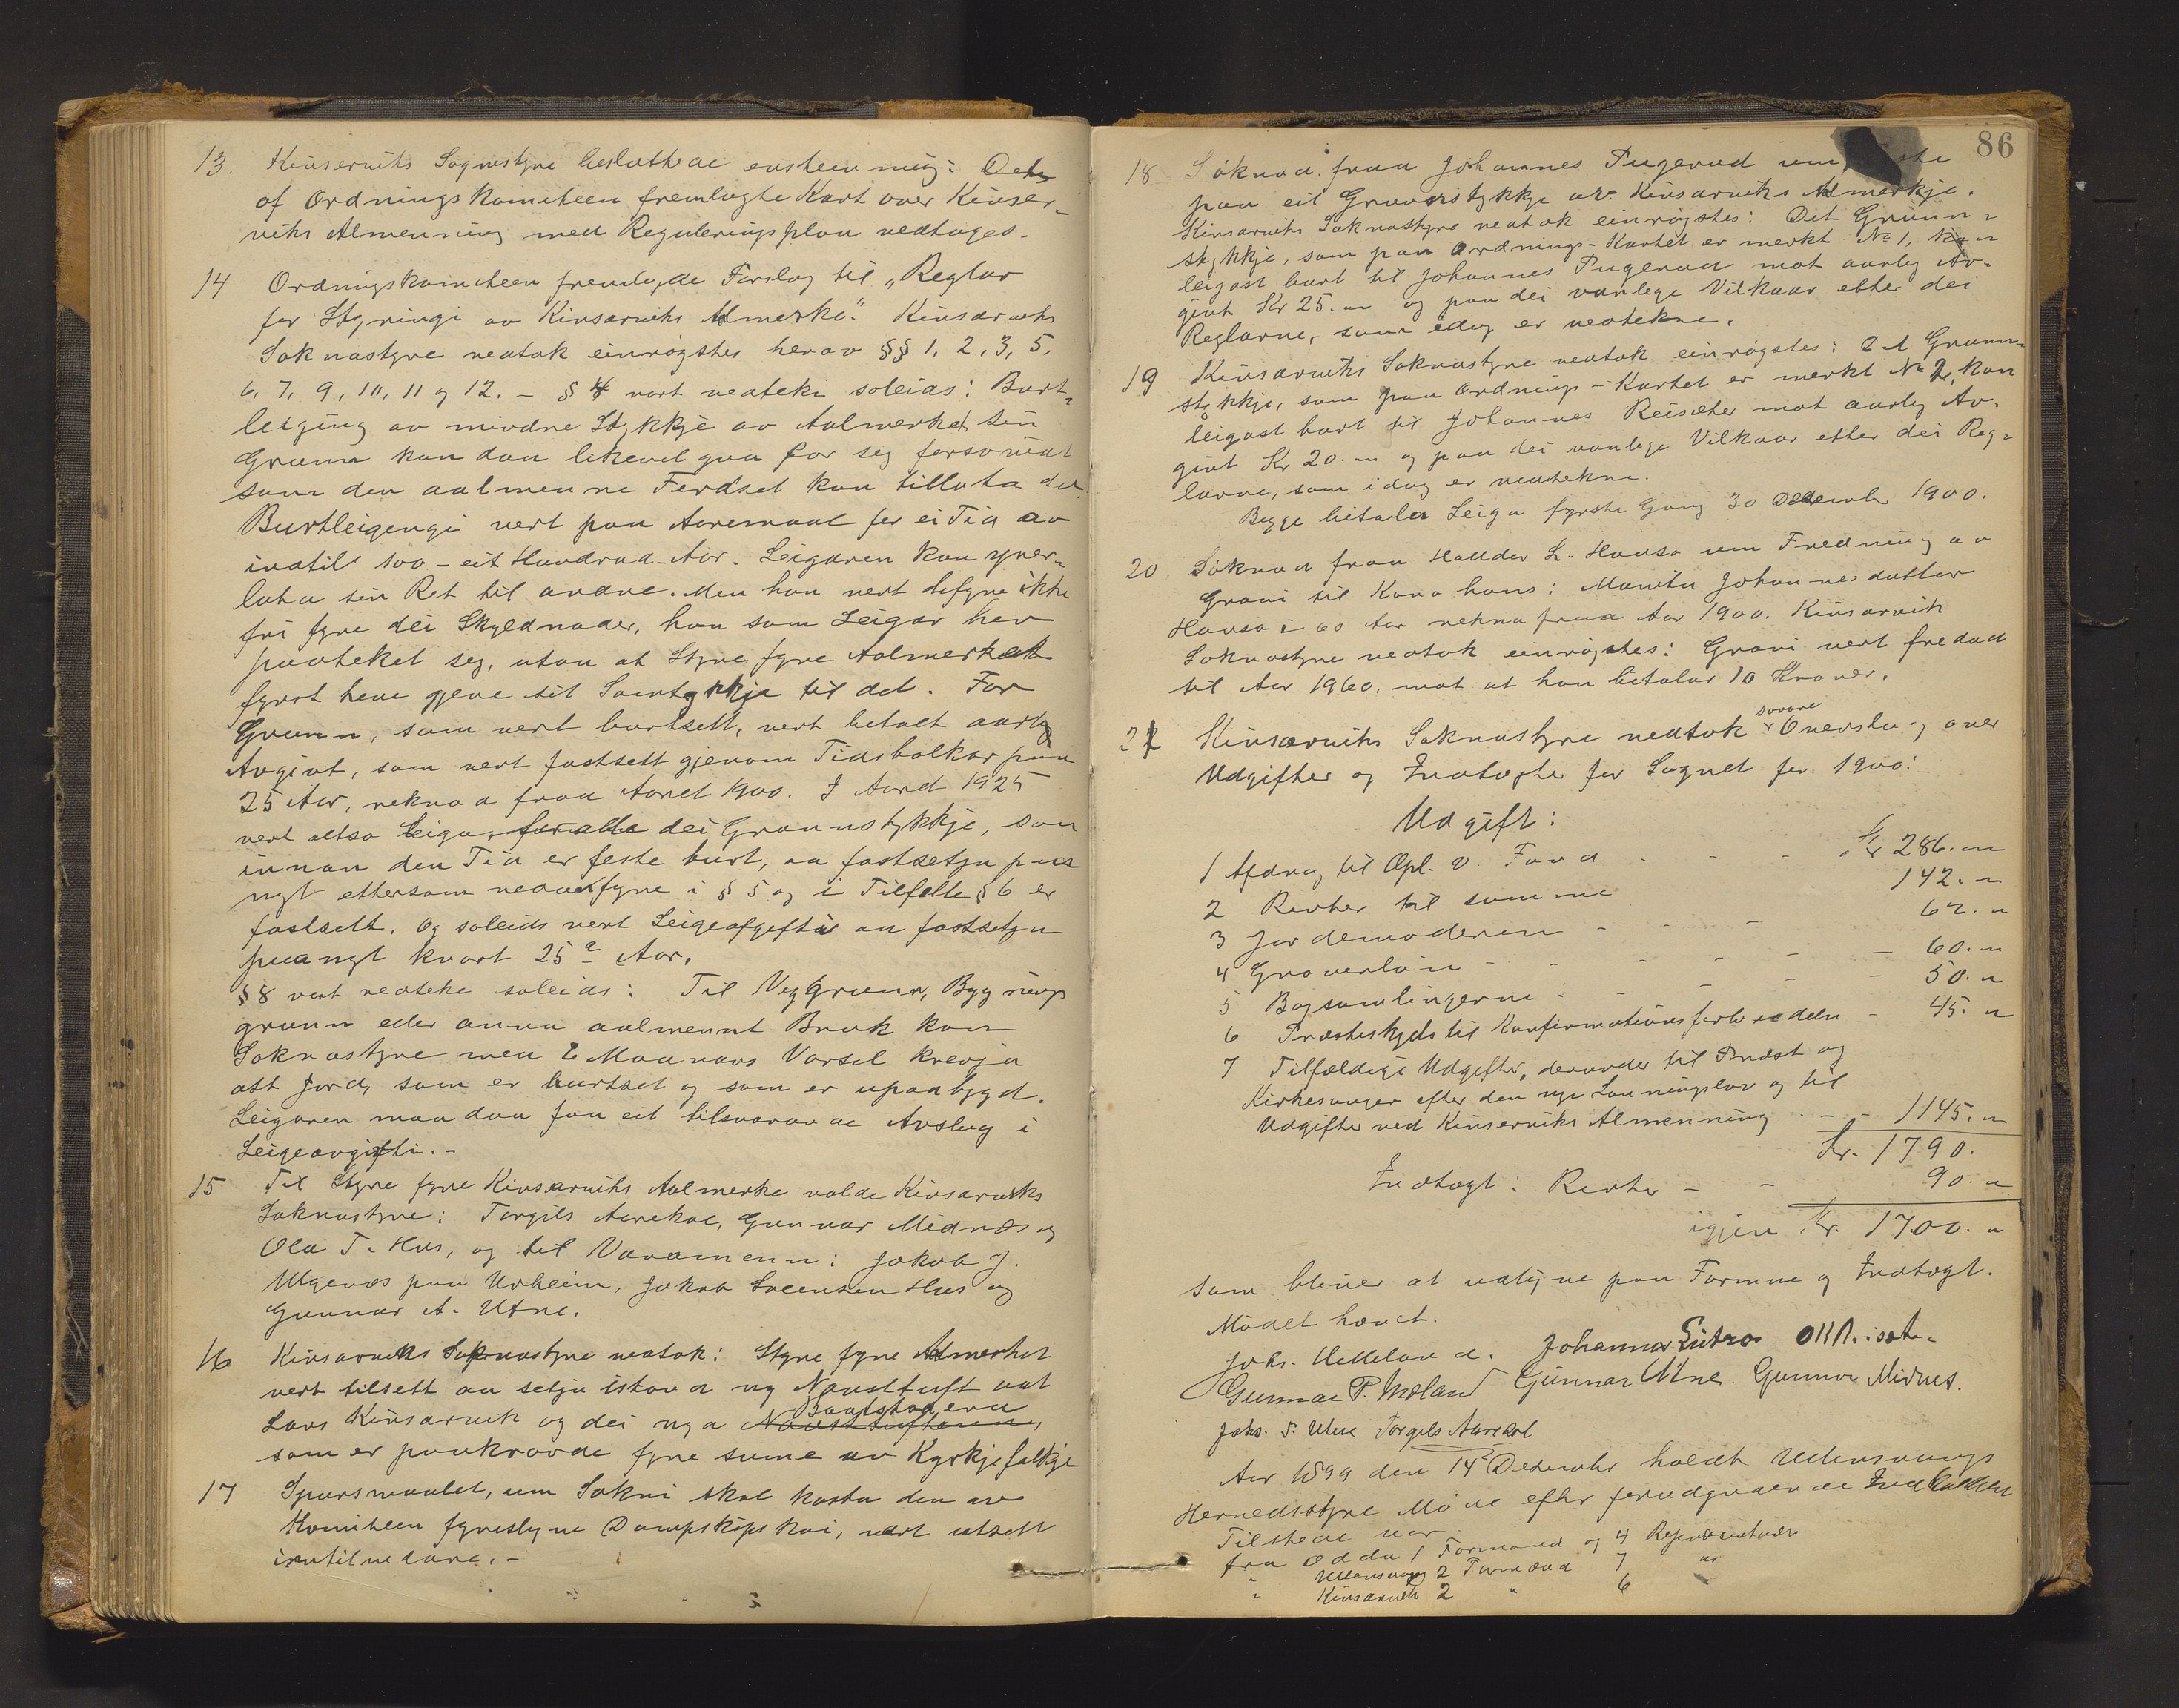 13. Kinserviks Sognestyre besluttede eensteemmig: Det
af Ordningskomiteen fremlagte Kart over Kinser-
viks Almenning med Reguleringsplan vedtages.
14 Ordningskomiteen fremlagde Forslag til „Reglar
for Styringi av Kinsarviks Almerke". Kinsarviks
Soknastyre vedtok einrøystes herav §§ 1, 2, 3, 5,
6, 7, 9, 10, 11 og 12. – § 4 vart vedteki soleids: Burt-
leiging av mindre Stykkje av Aalmerket sin
Grunn kan daa likevel gaa for seg forsovidt
som den aalmenne Ferdsel kan tillata det.
Burtleigengi vert paa Aaremaal for ei Tid av
inntil 100 – eit Hundrad – Aar. Leigaren kan yver-
lata sin Ret til andre. Men han vert difyre ikke
fri fyre dei Skyldnader, han som Leigar hev
paateket seg, utan at Styre fyre Aalmerket
fyrst heve gjeve sit Samtykkje til det. For
Grunn, som vert burtsett, vert betalt aarleg
Avgivt, som vert fastsett gjenom Tidsbolkar paa
25 Aar, rekna d fraa Aaret 1900. I Aaret 1925
vert altso Leiga, for alle dei Grunnstykkje, som
innan den Tid er feste burt, aa fastsetja paa
nyt ettersom nedanfyre i § 5 og i Tilfelle § 6 er
fastsett. Og soleids vert Leigeafgiftir aa fastsetja
paa nyt kvart 25de Aar.
§ 8 vart vedteke soleids: Til Veggrunn, Bygnings
grunn eller anna aalmennt Bruk kan
Soknastyre med 6 Maanars Varsel krevja
att Jord, som er burtset og som er upaabygd.
Leigaren maa daa faa eit tilsvarande Avslag i
Leigeavgifti. –
15 Til Styre fyre Kinsarviks Aalmerke valde Kinsarviks
Soknastyre: Torgils Aarekol, Gunnar Midnæs og
Ola T. Hus, og til Varamenn: Jakob J.
Utgenæs paa Urheim, Jakob Sveensen Hus og
Gunnar A. Utne.
16 Kinsarviks Soknastyre vedtok: Styre fyre Almerket
vert tilsett aa setja istand ny Nausttuft aat
Lars Kinsarvik og dei nya Nausttufterna, Baatstaderna
som er paakravde fyre sume av Kyrkjefolkje
17 Spursmaalet, um Sokni skal kosta den av
Komiteen fyreslegne Dampskipskai, vert utsett
inntil vidare. –
86
18 Søknad fraa Johannes Pugerud um
paa eit Grunnstykkje av Kinsarviks Almerkje.
Kinsarviks Soknastyre vedtok einrøystes: Det Grunn-
stykkje, som paa Ordnings-Kartet er merkt No 1, kan
leigast burt til Johannes Pugerud mot aarleg Av-
givt Kr 25. „ og paa dei vanlege Vilkaar etter dei
Reglarne, som idag er vedtekne.
19 Kinsarviks Soknastyre vedtok einrøystes: Det Grunn-
stykkje, som paa Ordnings-Kartet er merkt No 2, kan
leigast burt til Johannes Reisæter mot aarleg Av-
givt Kr 20. „ og paa dei vanlege Vilkaar etter dei Reg-
larne, som idag er vedtekne.
Begge betalar Leiga fyrste Gang 30 Desember 1900.
20 Søknad fraa Halldor L. Hauso um Fredning av
Gravi til Kona hans: Marita Johannesdotter
Hauso i 60 Aar rekna fraa Aar 1900. Kinsarvik
Soknastyre vedtok einrøystes: Gravi vert fredad
til Aar 1960. mot at han betalar 10 Kroner.
21 Kinsarviks Soknastyre vedtok Overslag over
Udgifter og Indtægter for Sognet for 1900:
Udgift:
1 Afdrag til Opl. v. Fond - - - Kr 286. „
2 Renter til samme 142. „
3 Jordemoderen - - - 62. „
4 Graverløn - - - - - 60. „
5 Bogsamlingerne - - - - 50. „
6 Præsteskyds til Konfirmationsforberedelse - 45. „
7 Tilfældige Udgifter, derunder til Præst og
Kirkesanger efter den nye Lønningslov og til
Udgifter ved Kinserviks Almenning - - 1145. „
Kr. 1790.
Indtægt: Renter - - 90. „
igjen Kr. 1700. „
som bliver at udligne paa Formue og Indtægt.
Mødet hævet.
Johs. Velleland. Johannes Lutro OK Reisæte.
Gunnar P. Mæland Gunnar Utne. Gunnar Midnes.
Jaks. T. Utne Torgils Aarekol
Aar 1899 den 14de Desember holdt Udensvangs
Herredsstyre Møde efter forudgaaende Indkaldelse
Tilstede var
fra Odda 1 Formand og 4 Repræsentanter
" Ullensvang 2 Formænd 7 "
" Kinsarvik 2 " 6 "